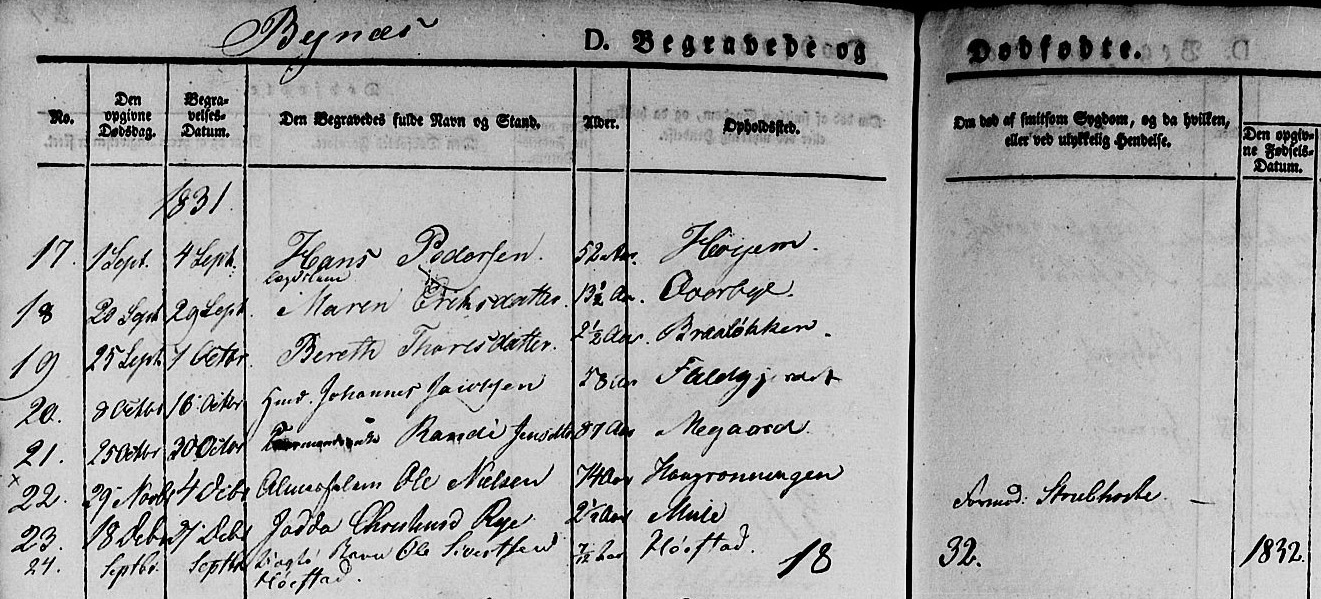 Bynæs
D. Begravede og Dødfødte.
No. Den opgivne Dødsdag. Begravelses-Datum. Den Begravedes fulde Navn og Stand. Alder. Opholdssted. Om død af smitsom Sygdom, og da hvilken, eller ved ulykkelig Hendelse. Den opgivne Fødsels-Datum.
1831
17. 1 Sept. 4 Sept. Hans Pedersen. 52 Aar. Høyem.
18 20 Sept 29 Sept. Maren Eriksdatter. 13½ Aar Overbye.
19 25 Sept 1 Octbr. Bereth Thoresdatter. 2½ Aar. Brealøkken.
20. 8 Octbr 16 Octbr Johannes Jacobsen 58 Aar
21. 25 Octbr 30 Octbr Randi Jensdtr 87 Aar Megaard.
22. 29 Novbr 4 Debr Ole Nielsen 74 Aar Haugrønningen Strubhoste. —
23. 18 Debr 27 Debr Rye. 2½ Aar Mule
24. Septbr Septbr Ole Sivertsen 7/12 Aar Høestad. 18 32. 1832.
Høestad.